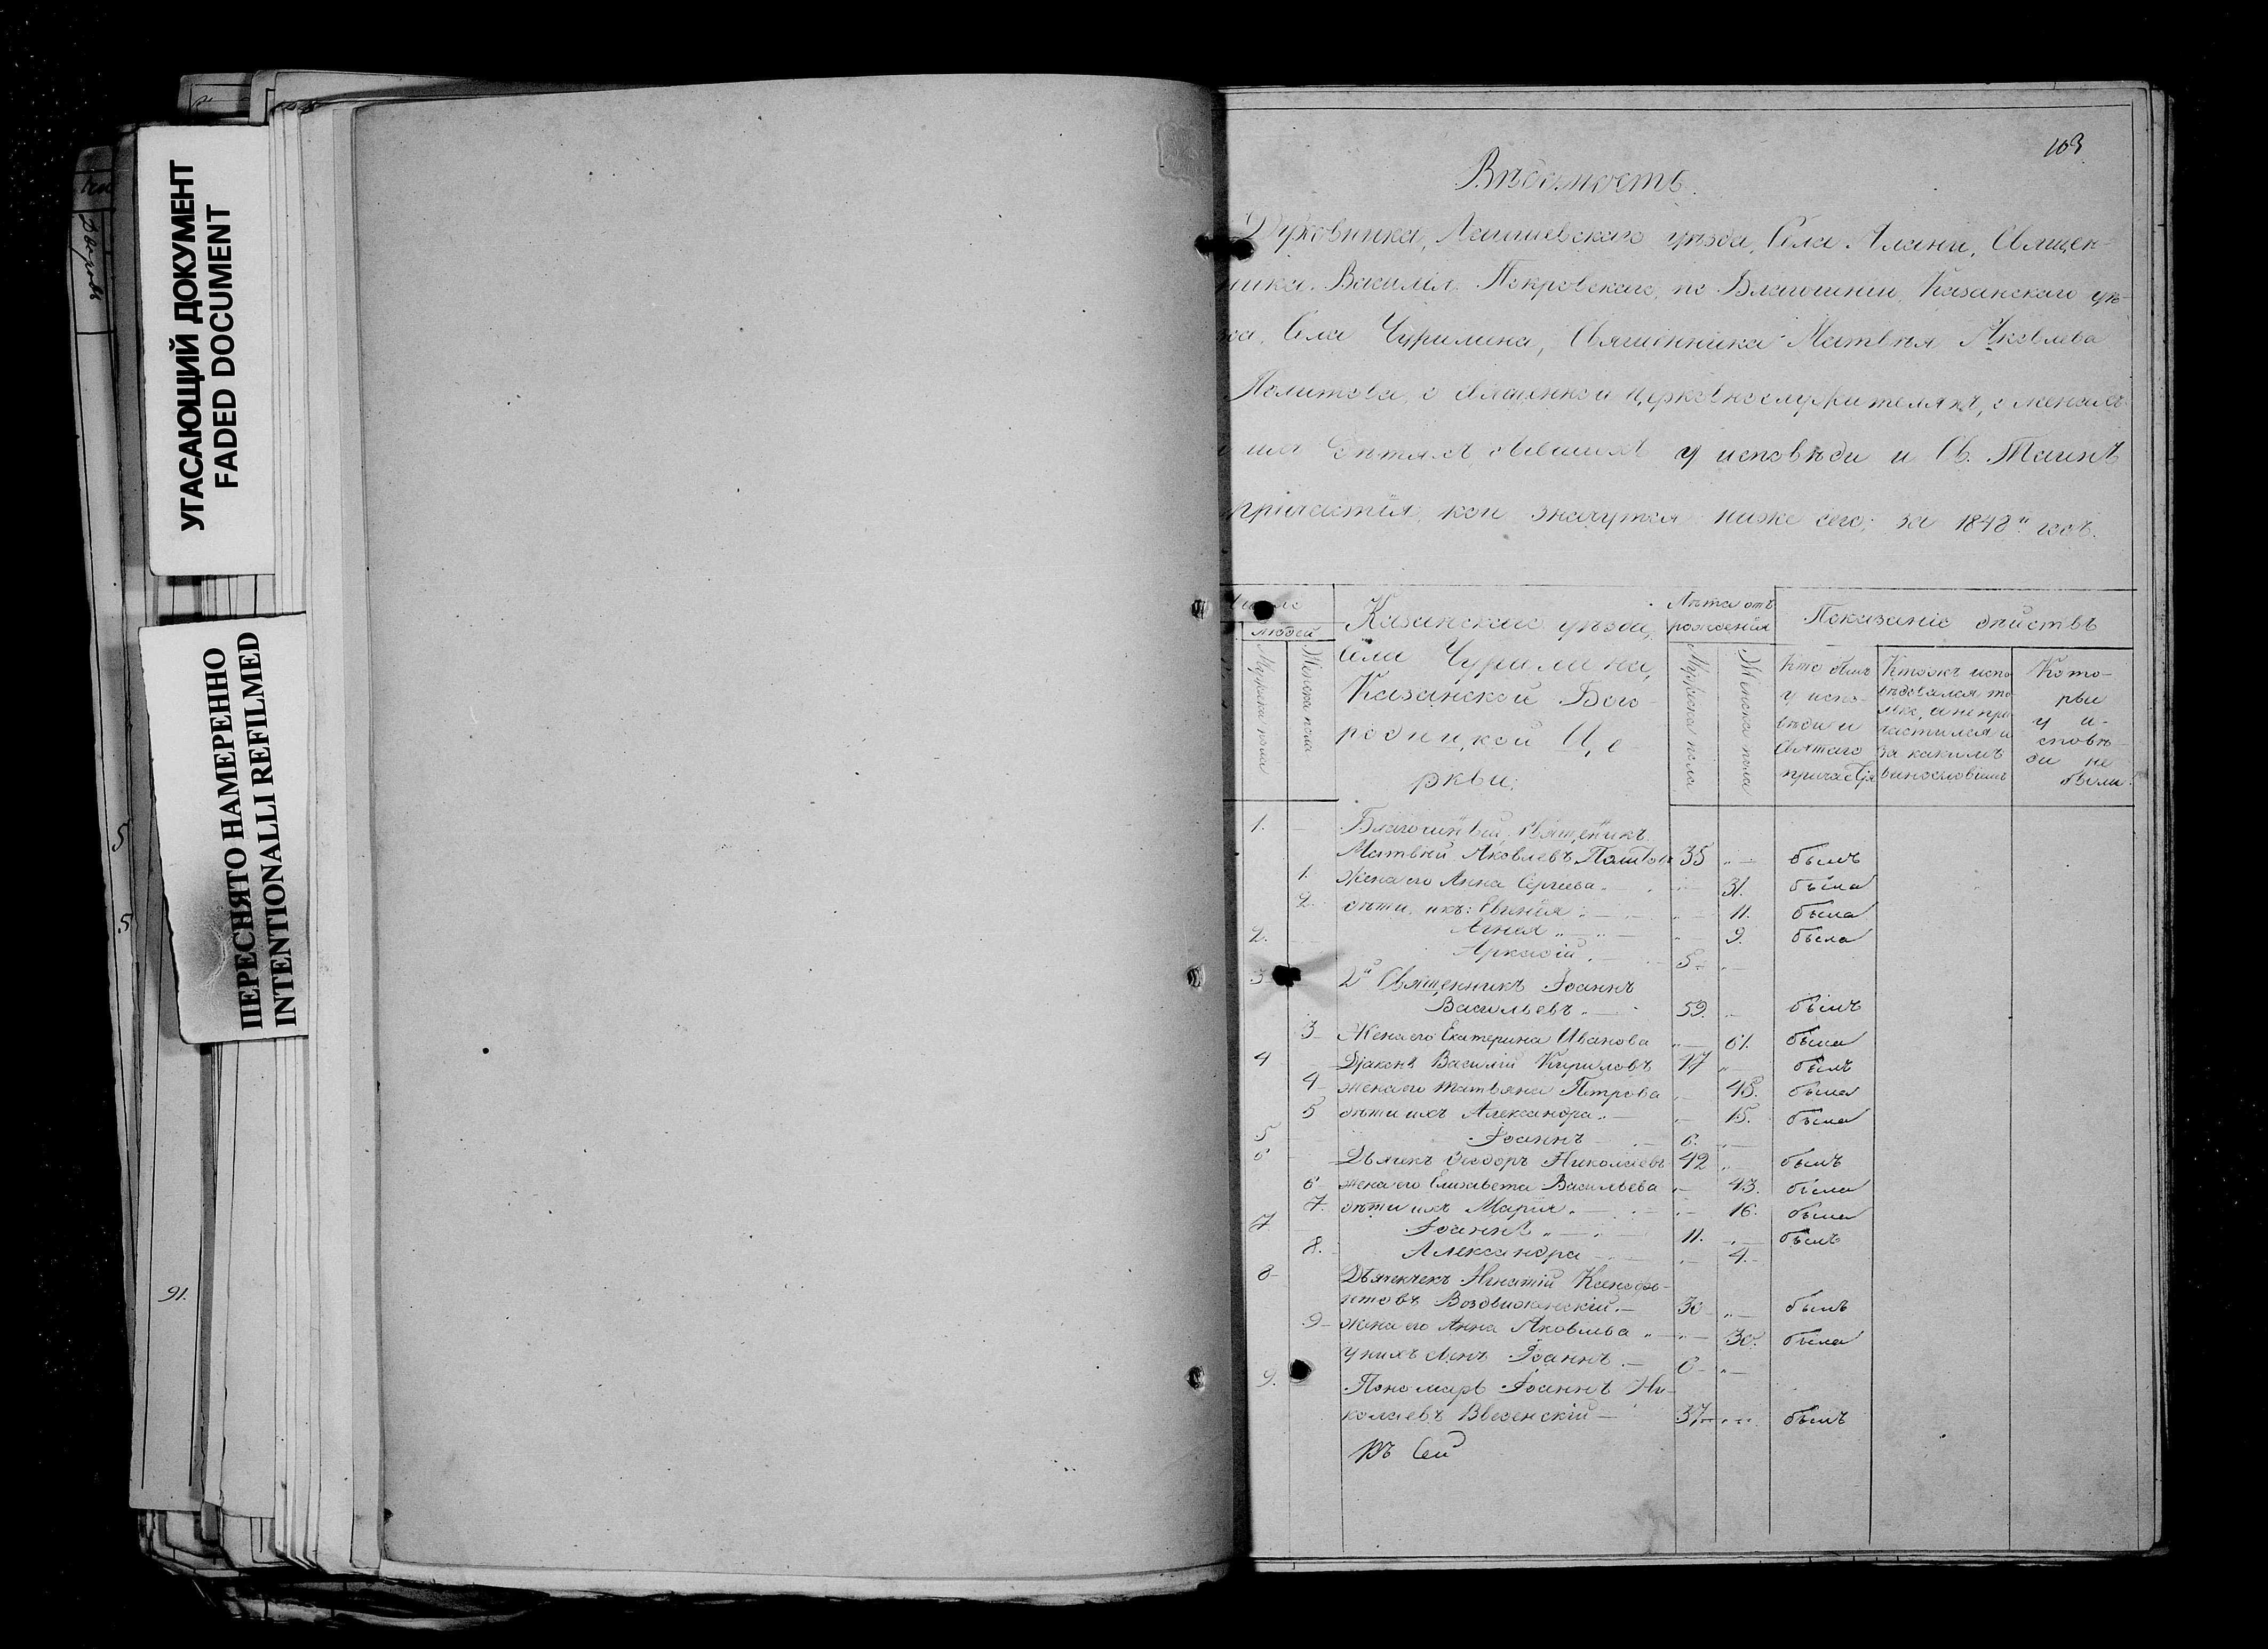 УГАСАЮЩИЙ ДОКУМЕНТ
FADED DOCUMENT
ПЕРЕСНЯТО НАМЕРЕННО
INTENTIONALLI REFILMED
5
5
91.
103
Вѣдомость.
Духовника, Лаишевскаго уѣзда, Села Алани, Священ-
ника Василія Покровскаго, по Благочинію, Казанскаго уѣ-
Села Чурилина, Священника Матвѣя Яковлева
Политова, о священно и церковнослужителяхъ, о женахъ
и дѣтяхъ бывшихъ у исповѣди и Св. Таинъ
причастія, кои значутся ниже сего; за 1848й годъ.
Число
людей
Мужска пола
Женска пола
Казанскаго уѣзда,
села Чурилина,
Казанской Бого-
родицкой Це-
ркви:
Лѣта отъ
рожденія
Мужска пола
Женска пола
Показаніе дѣйствъ
Кто былъ
у испо-
вѣди и
Святаго
причастія
Ктожъ испо
вѣдовался то
лко, а не при
частился и
за какимъ
винословіемъ
Кото-
рыи
у и-
сповѣ-
ди не
были.
1. Благочинный, священникъ
Матвѣй Яковлевъ Политовъ 35 былъ
1. Жена его Анна Сергѣева 31. была
2. дѣти ихъ: Евгенія 11. была
9. была
2. Аркадій 5
3 2й Священникъ Іоаннъ
Васильевъ 59. былъ
3 Жена его Екатерина Иванова 61. была
4 Діаконъ Василій Кириловъ 47 былъ
4 жена его Татьяна Петрова 48. была
5 дѣти ихъ Александра 15. была
5 Іоаннъ 6.
6 Дьячекъ Феодоръ Николаевъ 42 былъ
6 жена его Елисавета Васильева 43. была
7. дѣти ихъ Марія 16. была
7 Іоаннъ 11. былъ
8. Александра 4.
8 Дьячекъ Игнатій Ксенофо-
нтовъ Воздвиженскій 30 былъ
9 жена его Анна Яковлева 30. была
у нихъ сынъ Іоаннъ 6
9. Пономарь Іоаннъ Ни-
колаевъ Введенскій 37 былъ